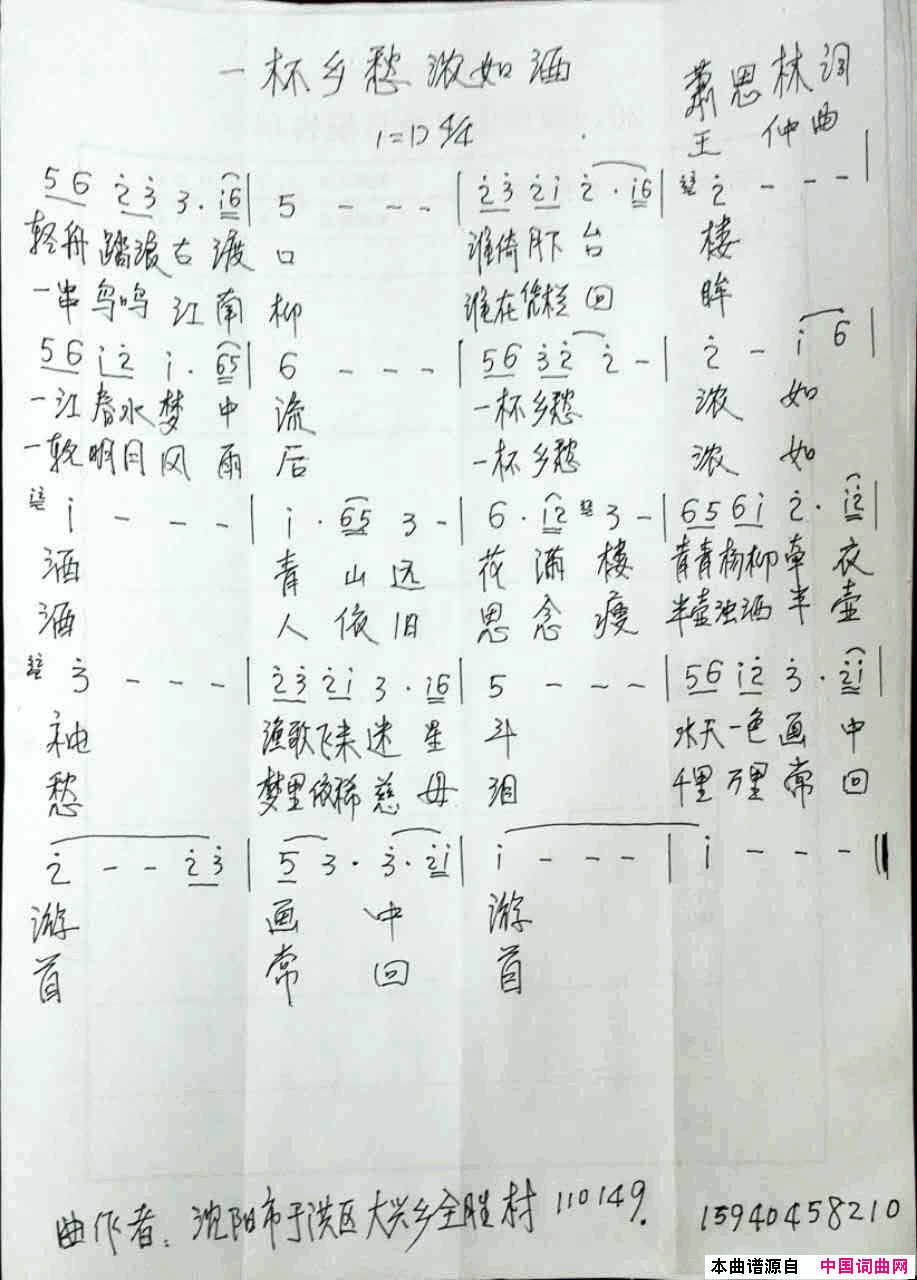 一杯乡愁浓如酒
萧思林词
1=D 4/4
王 仲曲
5 6 2 3 3 . i6 | 5 - - - | 2 3 2 i 2 . i6 | 2 - - - |
轻舟踏浪古渡口 谁倚月下台楼
一串鸟鸣江南柳 谁在凭栏回眸
5 6 i 2 i . 65 | 6 - - - | 5 6 3 2 2 - | 2 - i 6 |
一江春水梦中流 一杯乡愁浓如
一轮明月风雨后 一杯乡愁浓如
i - - - | i . 65 3 - | 6 . i2 3 - | 6 5 6 i 2 . i2 |
酒 青山远 花满楼 青青杨柳牵衣
酒 人依旧 思念瘦 半壶浊酒半壶
3 - - - | 2 3 2 i 3 . i6 | 5 - - - | 5 6 i 2 3 . 2i |
袖 渔歌飞来迷星斗 水天一色画中
愁 梦里依稀慈母泪 千里万里常回
2 - - 2 3 | 5 3 . 3 . 2i | i - - - | i - - - ||
游 画中游
首 常回首
曲作者:沈阳市于洪区大兴乡全胜村 110149. 15940458210
本曲谱源自 中国词曲网